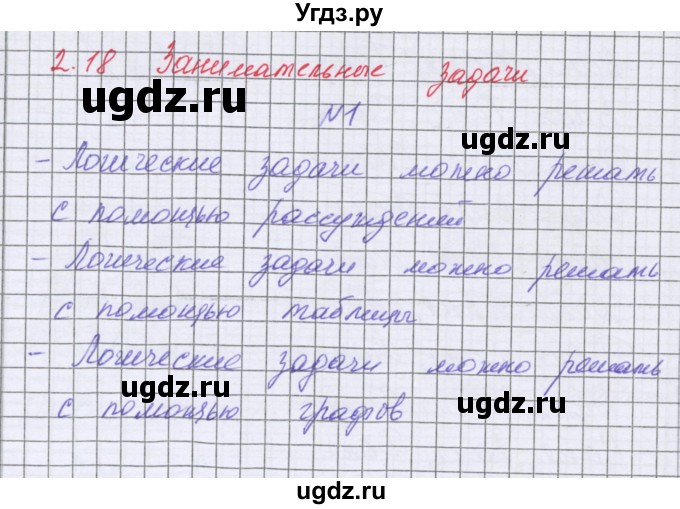 Угдз.ру
2.18 Занимательные задачи
ugdz.ru
ugdz.ru
№1
- Логические задачи можно решать
с помощью рассуждений
ugdz.ru
- Логические задачи можно решать
ugdz.ru
с помощью таблицы
- Логические задачи можно решать
ugdz.ru
ugdz.ru
с помощью графов
ugdz.ru
ugdz.ru